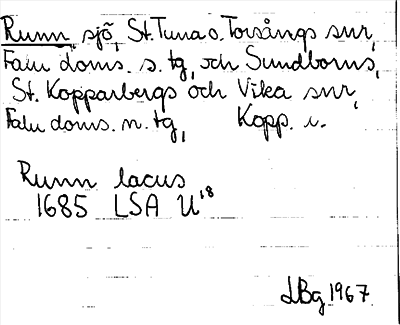 Runn, sjö, St. Tuna o. Torsångs snr,
Falu doms. s. tg, och Sundborns,
St. Kopparbergs och Vika snr,
Falu doms. n. tg, Kopp. l.
Runn lacus
1685 LSA U18
LBg 1967